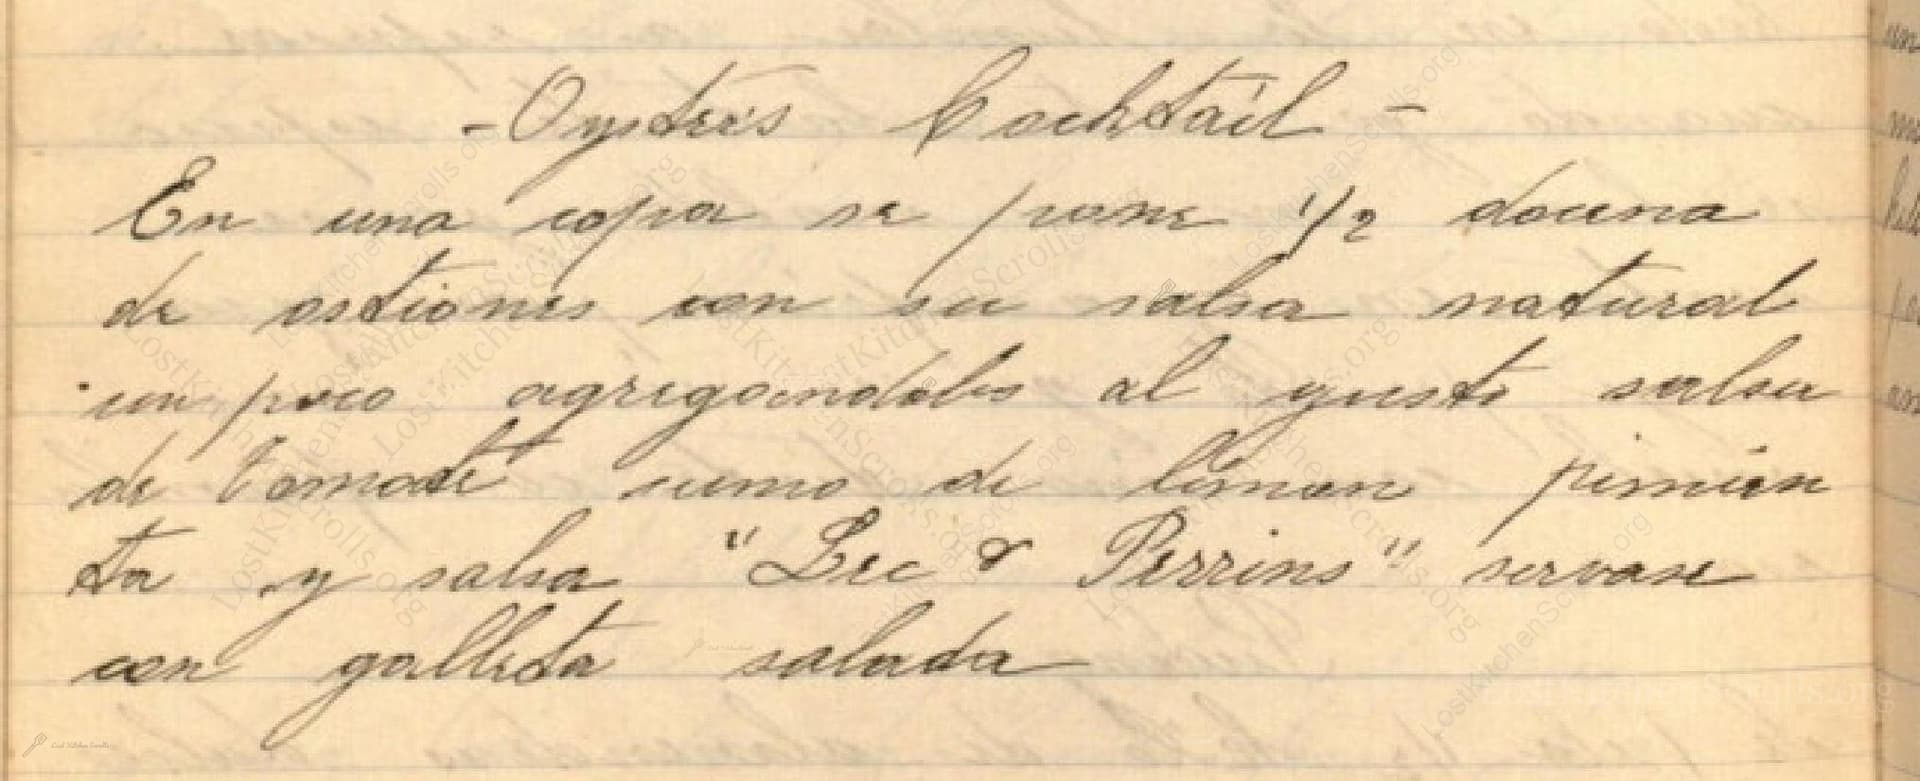 - Oystres Cocktail -
En una copa se pone 1/2 docena
de ostiones con su salsa natural
un poco agregandoles al gusto salsa
de tomate sumo de limon pimien
ta y salsa "Lee & Perrins" servase
con galleta salada